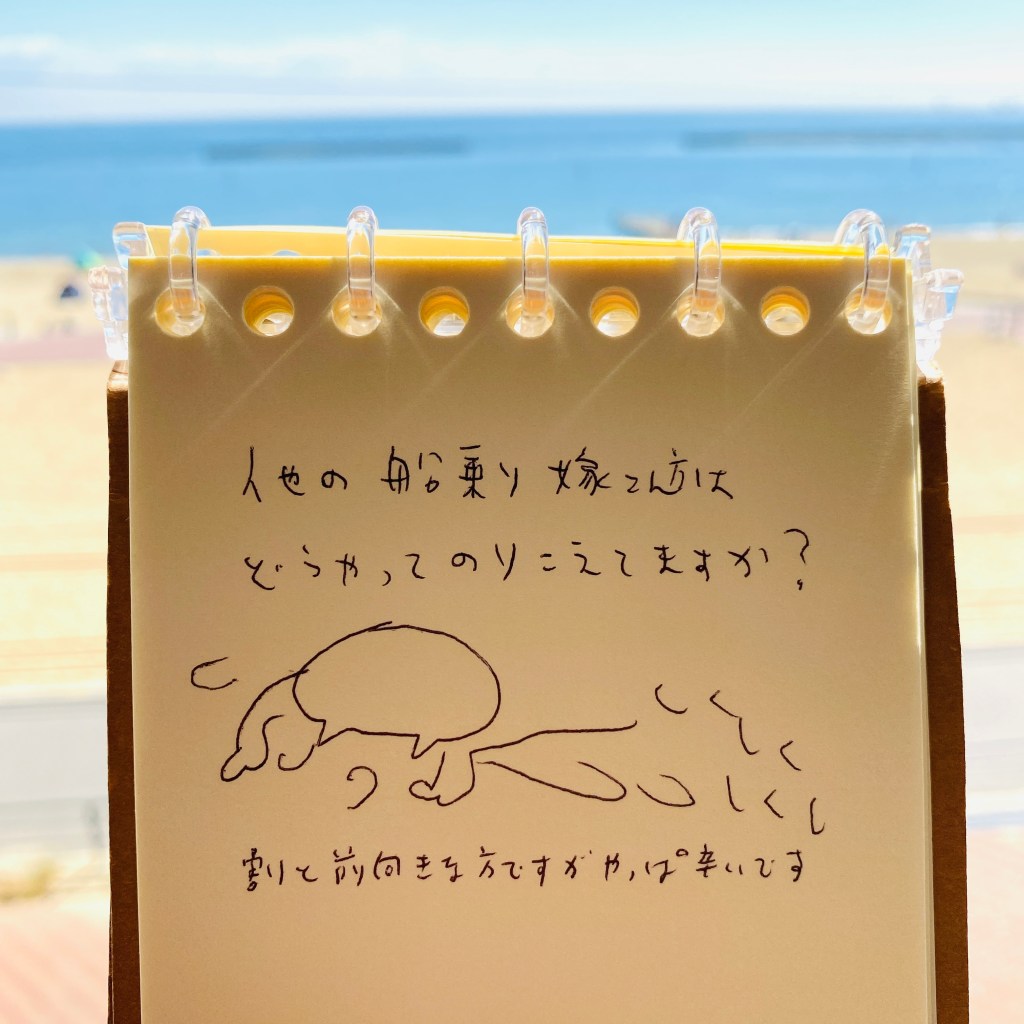 他の船乗り嫁さん方は
どうやってのりこえてますか?
割と前向きな方ですがやっぱ辛いです